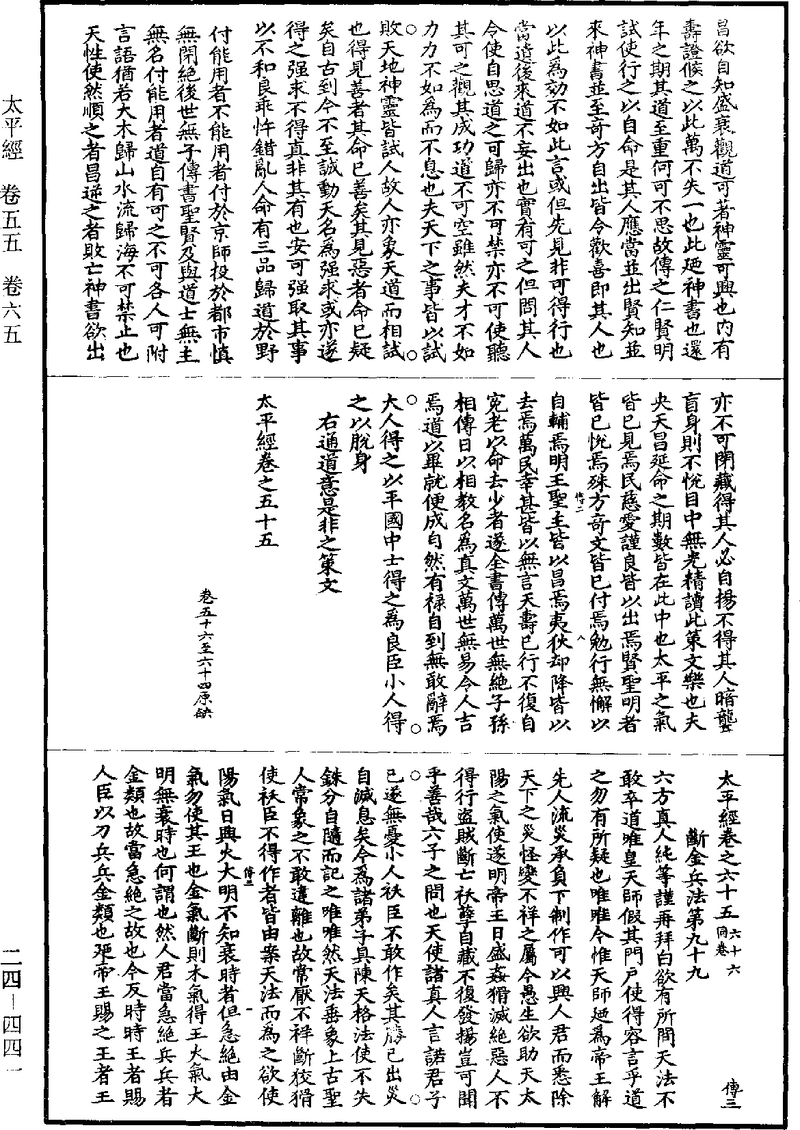 太平經　卷五五　卷六五
二四—四四一
昌欲自知盛衰觀道可著神靈可興也內有
壽證候之以此萬不失一也此廼神書也還
年之期其道至重何可不思故傳之仁賢明
試使行之以自命是其人應當並出賢知並
來神書並至奇方自出皆令歡喜即其人也
以此為効不如此言或但先見非可得行也
當遺後來道不妄出也實有可之但問其人
令使自思道之可歸亦不可禁亦不可使聽
其可之觀其成功道不可空雖然夫才不如
力力不如為而不息也夫天下之事皆以試
敗天地神靈皆試人故人亦象天道而相試
也得見善者其命已善矣其見惡者命已疑
矣自古到今不至誠動天名為強求或亦遂
得之强求不得真非其有也安可強取其事
以不和良乖忤錯亂人命有三品歸道於野
付能用者不能用者付於京師投於都市慎
無閉絕後世無子傳書聖賢及與道士無主
無名付能用者道自有可之不可各人可附
言語猶若大木歸山水流歸海不可禁止也
天性使然順之者昌逆之者敗亡神書欲出
亦不可閉藏得其人必自揚不得其人暗聾
盲身則不悅目中無光精讀此策文樂也夫
央天昌延命之期數皆在此中也太平之氣
皆已見焉民慈愛謹良皆以出焉賢聖明者
皆已悅焉殊方奇文皆已付焉勉行無懈以
傳二
八
自輔焉明王聖主皆以昌焉夷狄却降皆以
去焉萬民幸甚皆以無言天壽已行不復自
寃老以命去少者遂全書傳萬世無絕子孫
相傳日以相教名為真文萬世無易令人吉
焉道以畢就便成自然有祿自到無敢辭焉
大人得之以平國中士得之為良臣小人得
之以脫身
右通道意是非之策文
太平經卷之五十五
卷五十六至六十四原缺
太平經卷之六十五六十六同卷
傳三
斷金兵法第九十九
六方真人純等謹再拜白欲有所問天法不
敢卒道唯皇天師假其門戶使得容言乎道
之勿有所疑也唯唯今惟天師廼為帝王解
先人流災承負下制作可以興人君而悉除
天下之災怪變不祥之屬今愚生欲助天太
陽之氣使遂明帝王日盛姦猾滅絕惡人不
得行盜賊斷亡袄孽自藏不復發揚豈可聞
乎善哉六子之問也天使諸真人言諾君子
已遂無憂小人袄臣不敢作矣其勝已出災
自滅息矣今為諸弟子具陳天格法使不失
銖分自隨而記之唯唯然天法垂象上古聖
人常象之不敢違離也故常厭不祥斷狡猾
使袄臣不得作者皆由案天法而為之欲使
傳三
一
陽氣日興火大明不知衰時者但急絕由金
氣勿使其王也金氣斷則木氣得王火氣大
明無衰時也何謂也然人君當急絕兵兵者
金類也故當急絕之故也今反時時王者賜
人臣以刀兵兵金類也廼帝王賜之王者王